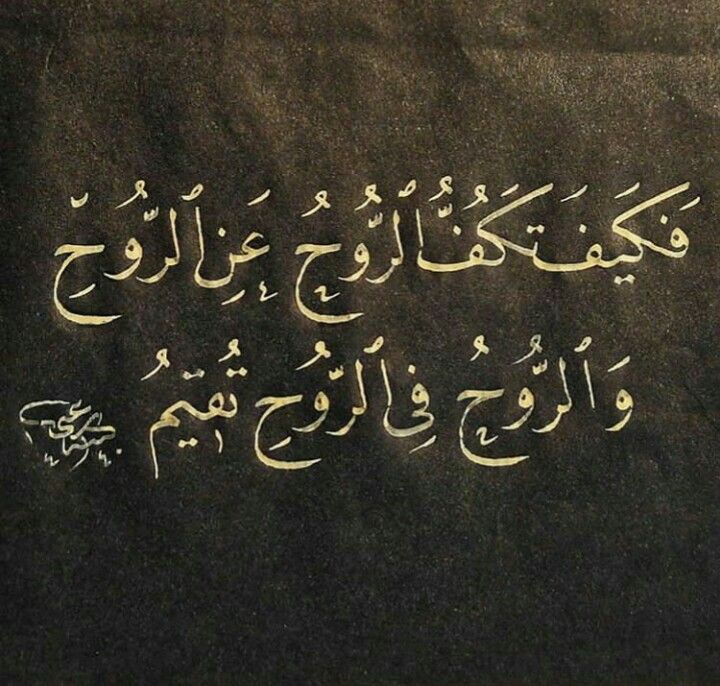 فَكَيْفَ تَكُفُّ ٱلرُّوحُ عَنِ ٱلرُّوحِ
وَٱلرُّوحُ فِي ٱلرُّوحِ تُقيمُ